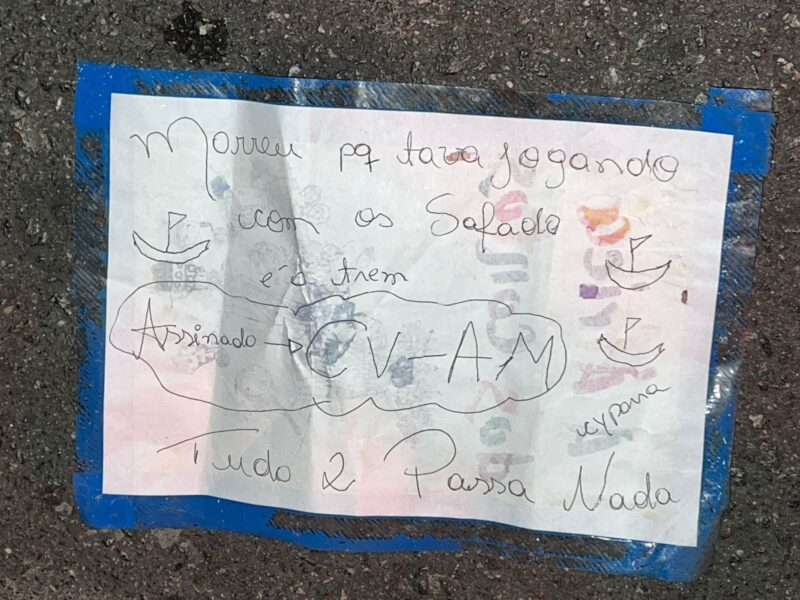 Morreu pq tava jogando
com os Safado
é o trem
Assinado → CV-AM
Tudo 2 Passa Nada